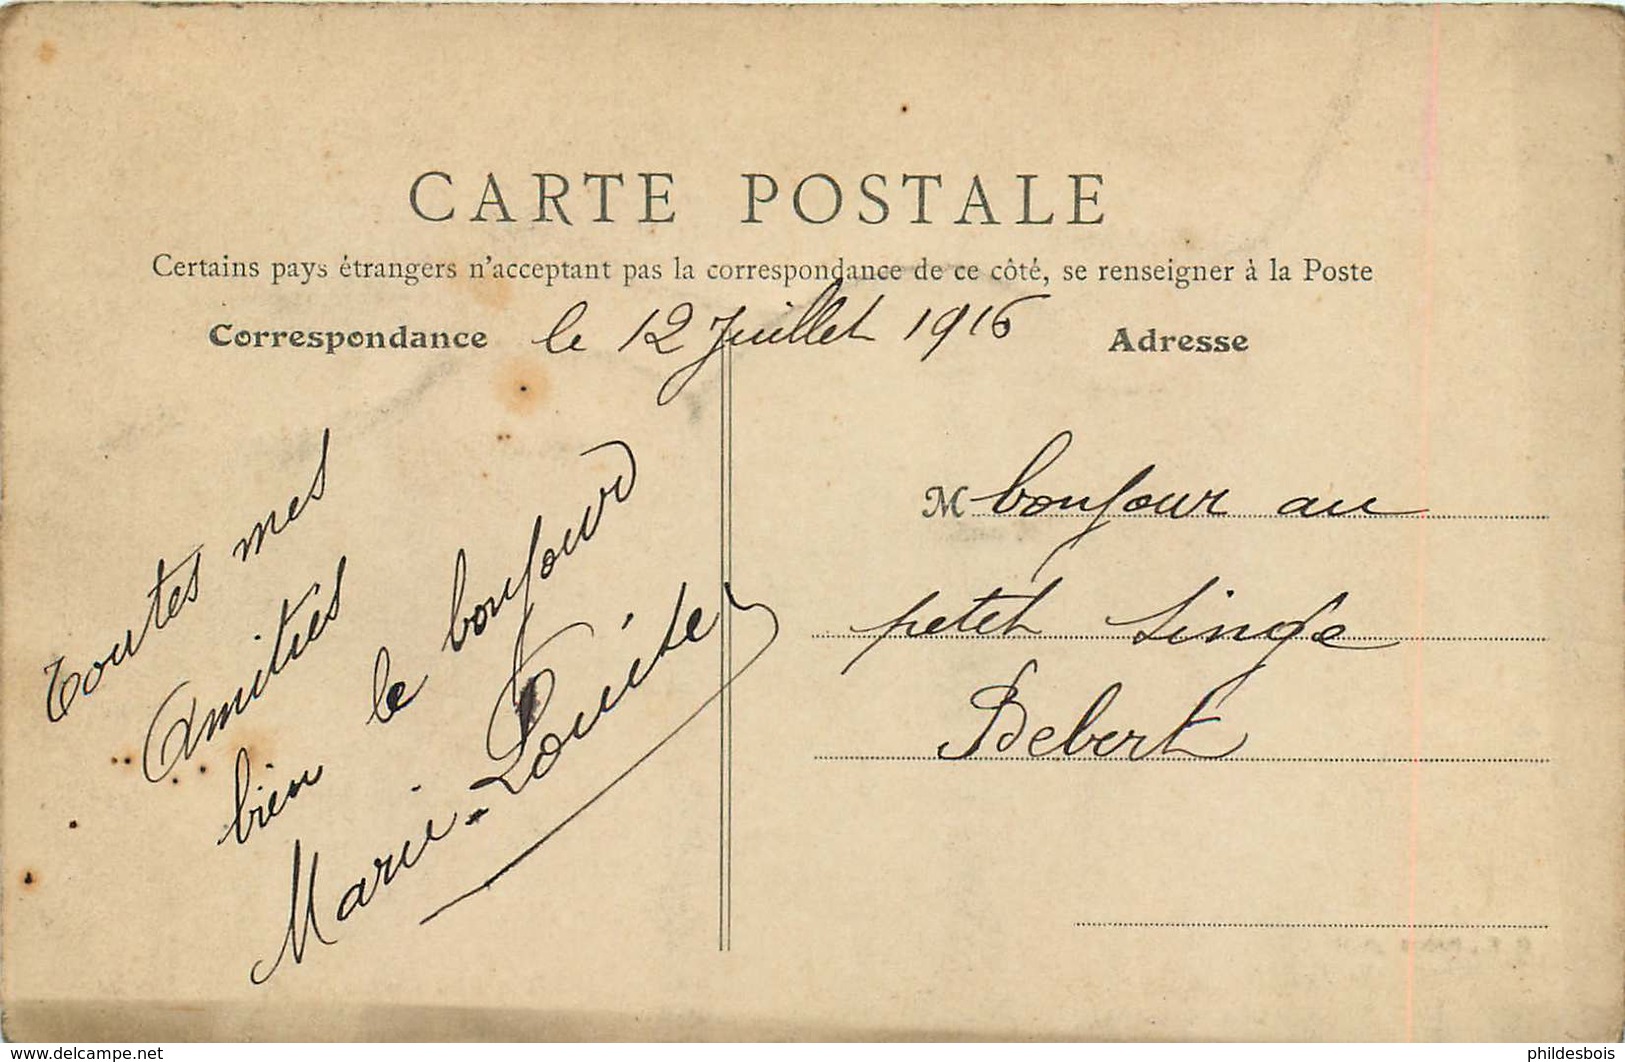 CARTE POSTALE
Certains pays étrangers n'acceptant pas la correspondance de ce côté, se renseigner à la Poste
Correspondance
le 12 Juillet 1916
Adresse
toutes mes
Amitiés
bien le bonjour
Marie-Louise
M bonjour au
petit singe
Bebert
www.delcampe.net
phildesbois